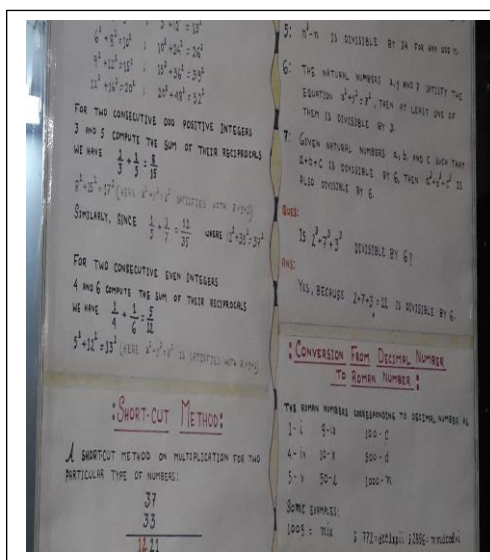 3²+12²=13²
6²+8²=10² ; 10²+24²=26²
9²+12²=15² ; 15²+36²=39²
12²+16²=20² ; 20²+48²=52²
FOR TWO CONSECUTIVE ODD POSITIVE INTEGERS
3 AND 5 COMPUTE THE SUM OF THEIR RECIPROCALS
WE HAVE 1/3 + 1/5 = 8/15
8²+15²=17² (HERE x²+y²=z² IS SATISFIED WITH z=y+2)
SIMILARLY, SINCE 1/5 + 1/7 = 12/35 WHERE 12²+35²=37²
FOR TWO CONSECUTIVE EVEN INTEGERS
4 AND 6 COMPUTE THE SUM OF THEIR RECIPROCALS
WE HAVE 1/4 + 1/6 = 5/12
5²+12²=13² (HERE x²+y²=z² IS SATISFIED WITH z=y+1)
:SHORT-CUT METHOD:
A SHORT-CUT METHOD ON MULTIPLICATION FOR TWO
PARTICULAR TYPE OF NUMBERS:
37
33
1221
5: IS DIVISIBLE BY 24 FOR ANY ODD n.
6: THE NATURAL NUMBERS x,y AND z SATISFY THE
EQUATION x²+y²=z², THEN AT LEAST ONE OF
THEM IS DIVISIBLE BY 3.
7: GIVEN NATURAL NUMBERS a, b, AND c SUCH THAT
a+b+c IS DIVISIBLE BY 6, THEN a³+b³+c³ IS
ALSO DIVISIBLE BY 6.
QUES:
IS 2³+7³+3³ DIVISIBLE BY 6?
ANS:
YES, BECAUSE 2+7+3=12 IS DIVISIBLE BY 6.
:CONVERSION FROM DECIMAL NUMBER
TO ROMAN NUMBER:
THE ROMAN NUMBERS CORRESPONDING TO DECIMAL NUMBER AS
1-i 9-ix 100-c
4-iv 10-x 500-d
5-v 50-l 1000-m
SOME EXAMPLES:
1009 = mix ; 772=dcclxxii ;